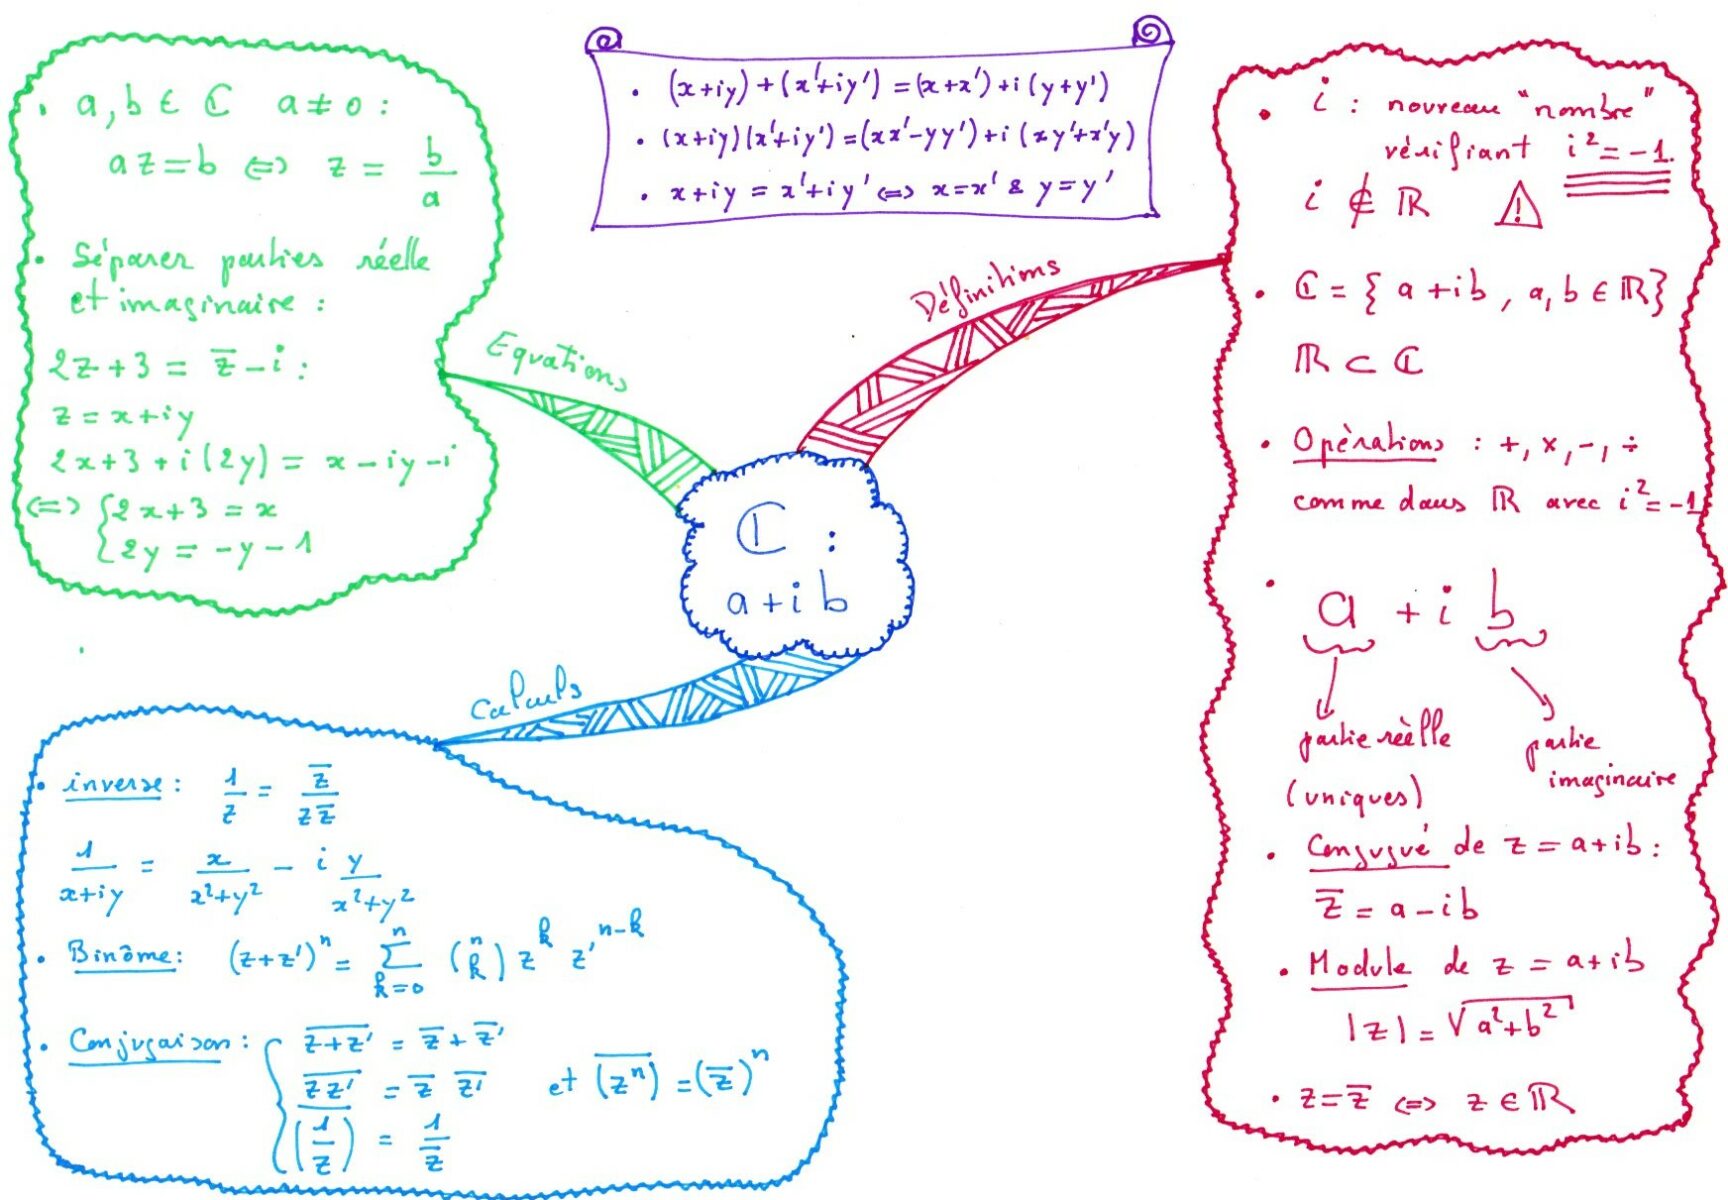 • (x+iy) + (x'+iy') = (x+x') + i (y+y')
• (x+iy)(x'+iy') = (xx'-yy') + i (xy'+x'y)
• x+iy = x'+iy' ⇔ x=x' & y=y'
• a, b ∈ ℂ a ≠ 0 :
az = b ⇔ z = b/a
• Séparer parties réelle
et imaginaire :
2z+3 = z̅ - i :
z = x+iy
2x+3 + i(2y) = x - iy - i
⇔ { 2x+3 = x
2y = -y-1
Equations
Définitions
ℂ :
a+ib
Calculs
• i : nouveau "nombre"
vérifiant i² = -1.
i ∉ ℝ ⚠
• ℂ = { a+ib , a, b ∈ ℝ }
ℝ ⊂ ℂ
• Opèrations : +, ×, -, ÷
comme dans ℝ avec i² = -1
• a + i b
partie rèelle
partie
imaginaire
(uniques)
• Conjugué de z = a+ib :
z̅ = a-ib
• Module de z = a+ib
|z| = √(a²+b²)
• z = z̅ ⇔ z ∈ ℝ
• inverse : 1/z = z̅/(z z̅)
1/(x+iy) = x/(x²+y²) - i y/(x²+y²)
• Binôme : (z+z')ⁿ = ∑_{k=0}^{n} (n k) z^k z'^{n-k}
• Conjugaison : { \overline{z+z'} = z̅ + \overline{z'}
\overline{zz'} = z̅ \overline{z'} et \overline{(zⁿ)} = (z̅)ⁿ
\overline{(1/z)} = 1/z̅